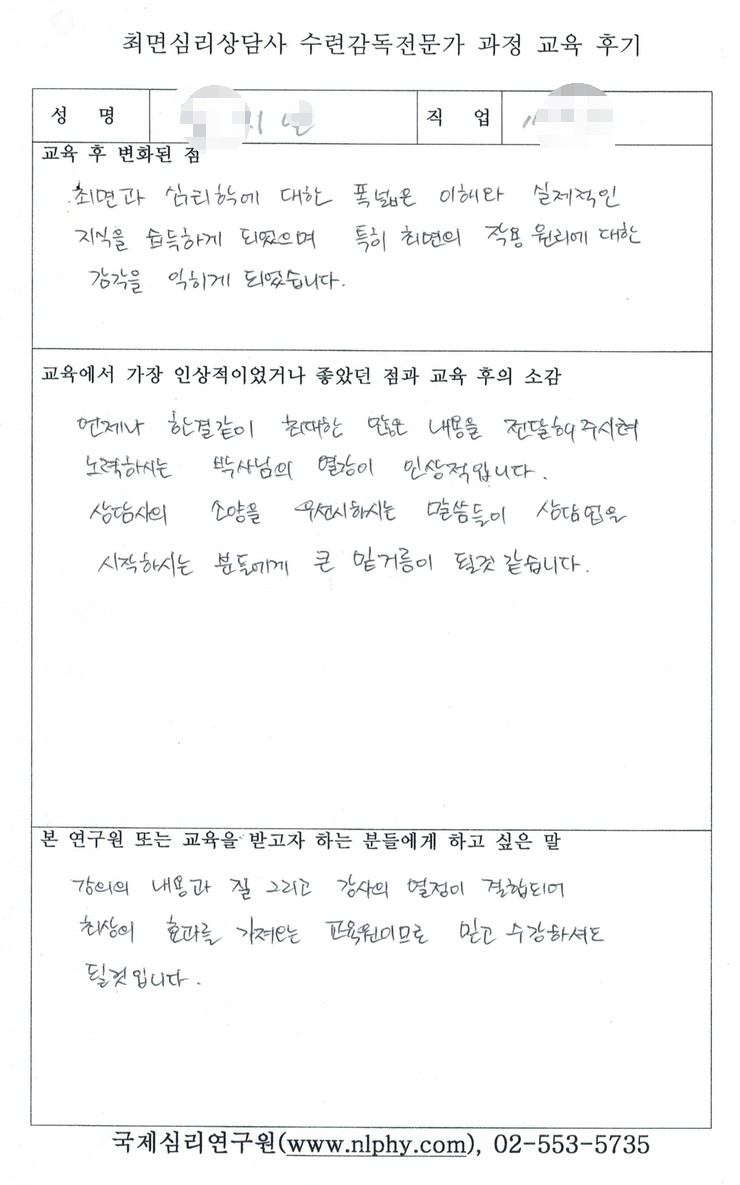 최면심리상담사 수련감독전문가 과정 교육 후기
성 명
직 업
교육 후 변화된 점
최면과 심리학에 대한 폭넓은 이해와 실제적인
지식을 습득하게 되었으며 특히 최면의 작용 원리에 대한
감각을 익히게 되었습니다.
교육에서 가장 인상적이었거나 좋았던 점과 교육 후의 소감
언제나 한결같이 최대한 많은 내용을 전달해주시려
노력하시는 박사님의 열강이 인상적입니다.
상담사의 소양을 우선시하시는 말씀들이 상담업을
시작하시는 분들에게 큰 밑거름이 될것 같습니다.
본 연구원 또는 교육을 받고자 하는 분들에게 하고 싶은 말
강의의 내용과 질 그리고 강사의 열정이 결합되어
최상의 효과를 가져오는 교육원이므로 믿고 수강하셔도
될것입니다.
국제심리연구원(www.nlphy.com), 02-553-5735